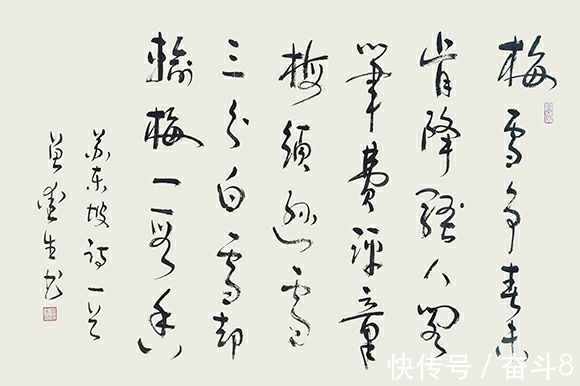 梅雪争春未
肯降骚人阁
筆費评章
梅須遜雪
三分白雪却
輸梅一段香
苏东坡诗一首
生书
快传号 / 奋斗8